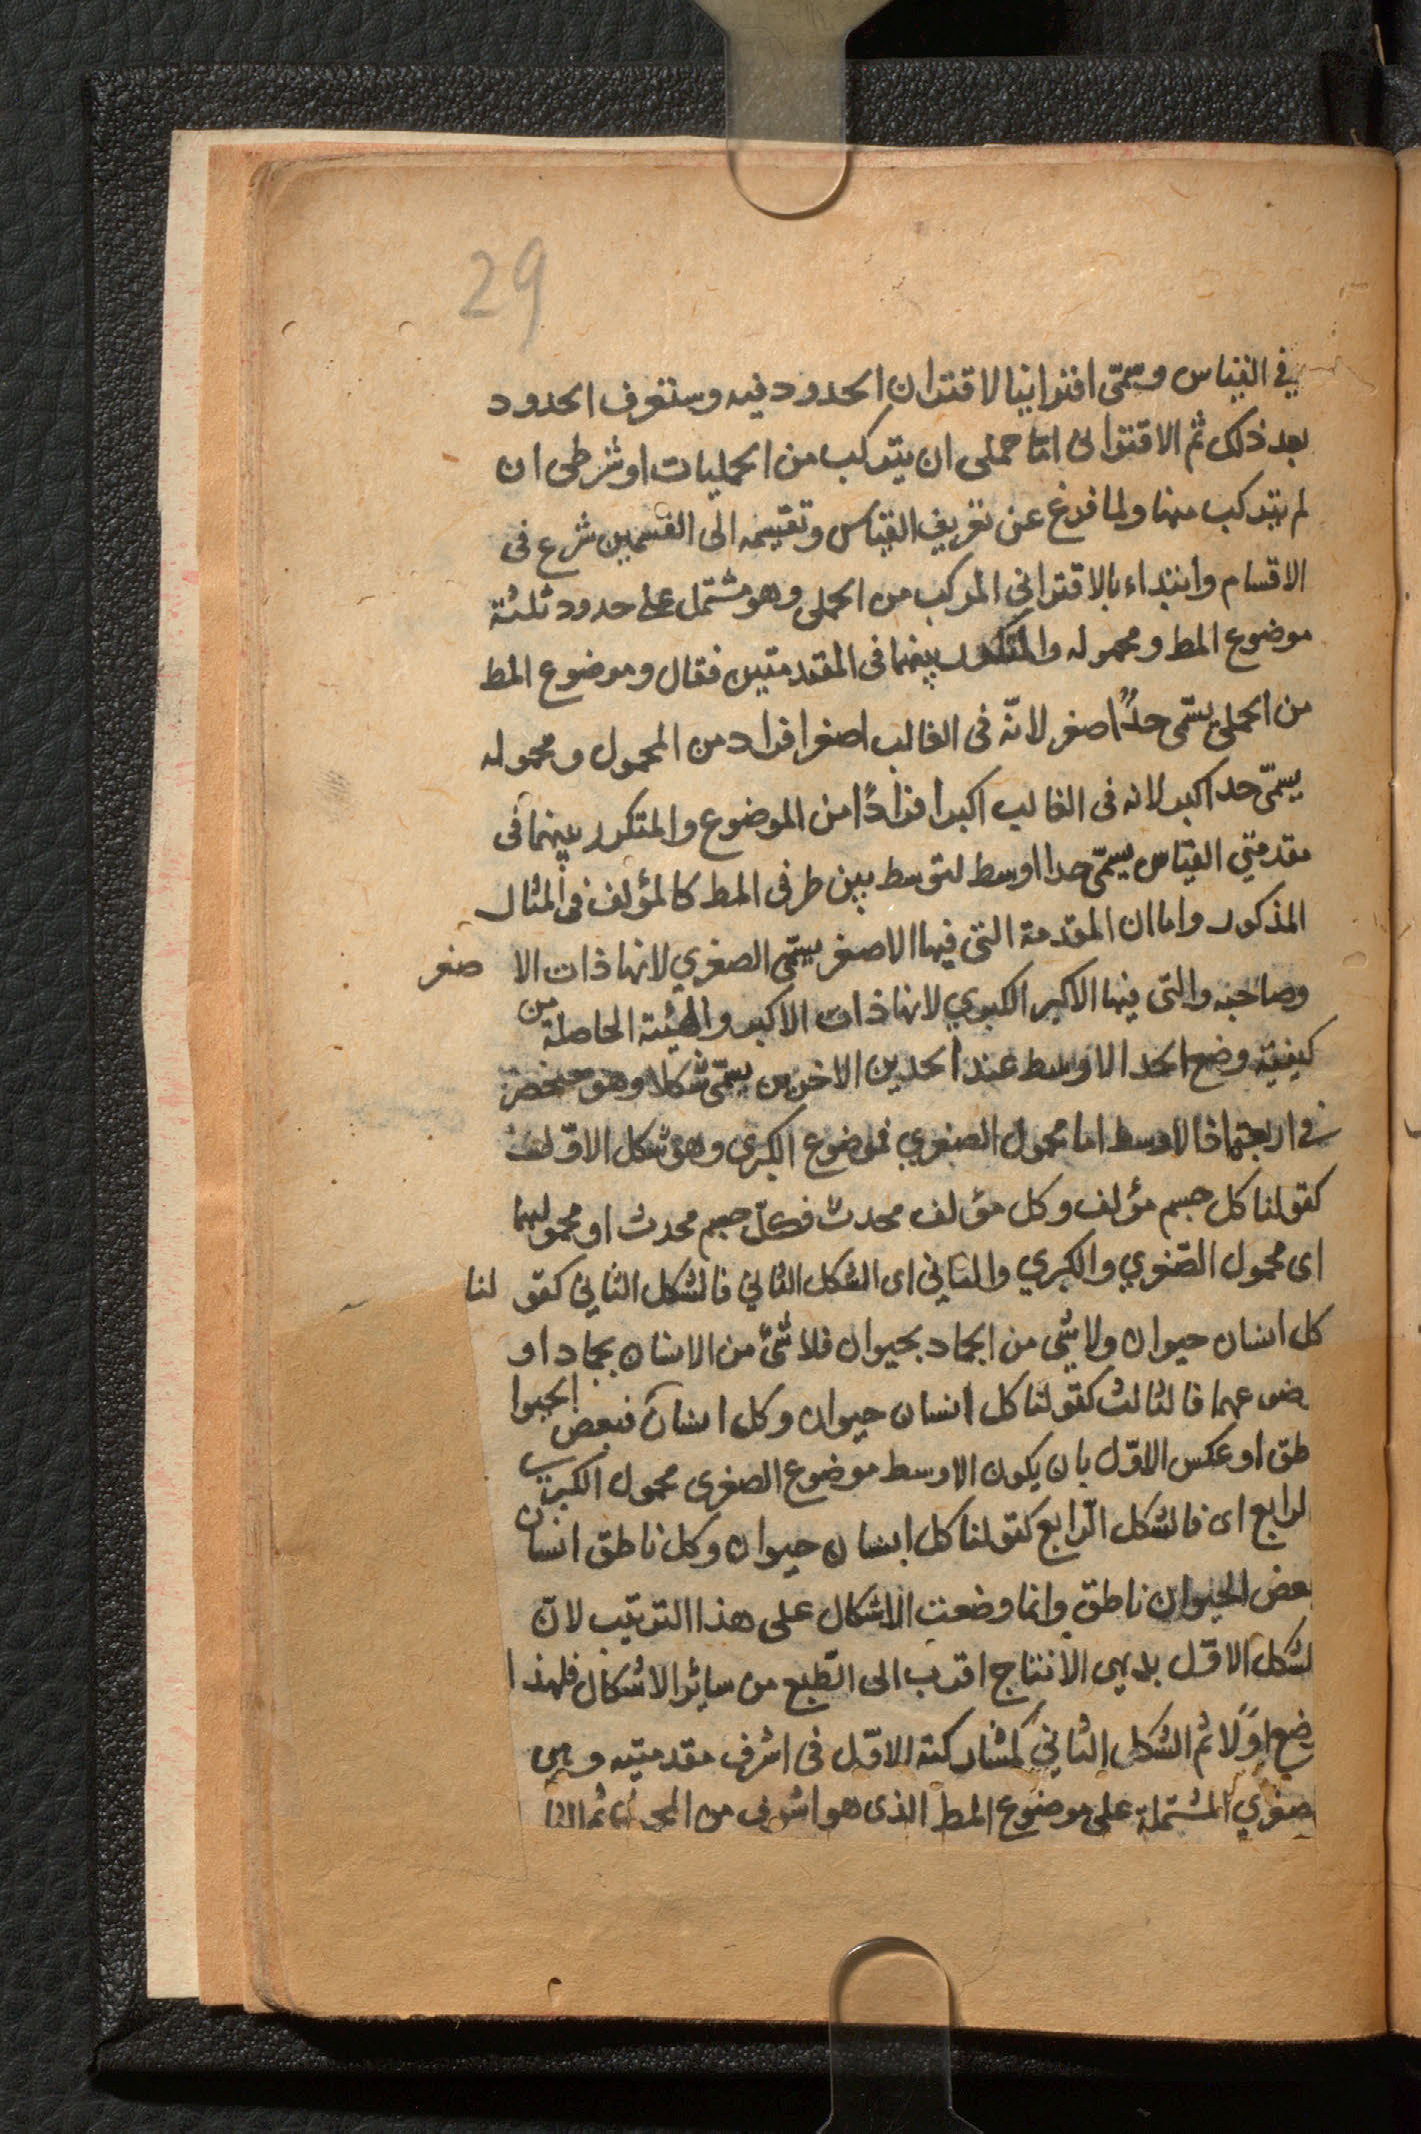 29
في القياس ويسمّى اقترانيا لاقتران الحدود فيه وستعرف الحدود
بعد ذلك ثم الاقتراني امّا حملى ان يتركب من الحمليات او شرطى ان
لم يتركب منها ولما فرغ عن تعريف القياس وتقسيمه الى القسمين شرع فى
الاقسام وابتداء بالاقتراني المركب من الحملى وهو مشتمل على حدود ثلثة
موضوع المط ومحموله والمتكرر بينهما فى المقدمتين فقال وموضوع المط
من الحملى يسمّى حدًا اصغر لانّه فى الغالب اصغر افراد من المحمول ومحموله
يسمّى حد اكبر لانه فى الغالب اكبر افرادًا من الموضوع والمتكرر بينهما فى
مقدمتي القياس يسمّى حدا اوسط لتوسط بين طرفى المط كالمؤلف فى المثال
المذكور واما ان المقدمة التى فيها الاصغر يسمّى الصغري لانها ذات الا صغر
وصاحبه والتى فيها الاكبر الكبري لانها ذات الاكبر والهيئة الحاصلة من
كيفية وضع الحد الاوسط عند الحدين الاخرين يسمّى شكلا وهو منحصر
في اربعة فالاوسط اما محمول الصغري فموضوع الكبرى وهو شكل الاوّل
كقولنا كل جسم مؤلف وكل مؤلف محدث فكلّ جسم محدث او محمولهما
اى محمول الصّغري والكبري والثاني اى الشكل الثاني فالشكل الثاني كقو لنا
كل انسان حيوان ولا شى من الجماد بحيوان فلا شئ من الانسان بجماد او
ضوعهما فالثالث كقولنا كل انسان حيوان وكل انسان فبعض الحيوا
طق او عكس الاوّل بان يكون الاوسط موضوع الصغرى محمول الكبرى
لرابع اى فالشكل الرّابع كقولنا كل انسان حيوان وكل ناطق انسان
بعض الحيوان ناطق وانما وضعت الاشكال على هذا الترتيب لانّ
لشكل الاوّل بديهى الانتاج اقرب الى الطّبع من سائر الاشكال فلهذا
ضع اوّلا ثم الشكل الثاني لمشاركته الاوّل فى اشرف مقدمتيه وهى
صغري المشتملة على موضوع المط الذى هو اشرف من المحمول ثم الثا